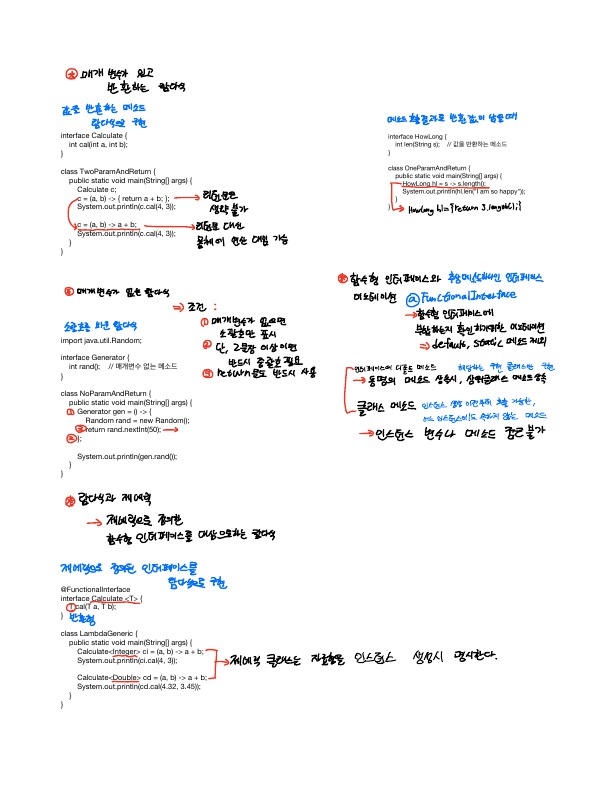 매개 변수가 있고
반환하는 람다식
값을 반환하는 메소드
람다식으로 구현
interface Calculate {
int cal(int a, int b);
}
class TwoParamAndReturn {
public static void main(String[] args) {
Calculate c;
c = (a, b) -> { return a + b; }; → return문은
System.out.println(c.cal(4, 3)); 생략 불가
c = (a, b) -> a + b; → return 대신
System.out.println(c.cal(4, 3)); 몸체에 연산 대입 가능
}
}
메소드 호출결과로 반환값이 남을때
interface HowLong {
int len(String s); // 값을 반환하는 메소드
}
class OneParamAndReturn {
public static void main(String[] args) {
HowLong hl = s -> s.length();
System.out.println(hl.len("I am so happy"));
}
} → HowLong hl={return s.length();}
매개변수가 없는 람다식
⇒ 조건 :
① 매개변수가 없으면
소괄호만 표시
② 단, 2문장 이상이면
반드시 중괄호 필요
③ return문도 반드시 사용
소괄호를 비운 람다식
import java.util.Random;
interface Generator {
int rand(); // 매개변수 없는 메소드
}
class NoParamAndReturn {
public static void main(String[] args) {
① Generator gen = () -> {
Random rand = new Random();
③ return rand.nextInt(50); →
② };
System.out.println(gen.rand());
}
}
함수형 인터페이스와 추상메소드하나인 인터페이스
어노테이션 @FunctionalInterface
→ 함수형 인터페이스에
부합하는지 확인하기위한 어노테이션
⇒ default, static 메소드 제외
인터페이스에 디폴트 메소드 해당하는 구현 클래스만 구현
→ 동명의 메소드 상속시, 상위클래스 메소드 상속
클래스 메소드 인스턴스 생성 이전부터 호출 가능한,
어느 인스턴스에도 속하지 않는 메소드
→ 인스턴스 변수나 메소드 접근 불가
람다식과 제네릭
→ 제네릭으로 정의한
함수형 인터페이스를 대상으로하는 람다식
제네릭으로 정의된 인터페이스를
람다식으로 구현
@FunctionalInterface
interface Calculate <T> {
T cal(T a, T b);
} 반환형
class LambdaGeneric {
public static void main(String[] args) {
Calculate<Integer> ci = (a, b) -> a + b;
System.out.println(ci.cal(4, 3));
→ 제네릭 클래스는 자료형을 인스턴스 생성시 명시한다.
Calculate<Double> cd = (a, b) -> a + b;
System.out.println(cd.cal(4.32, 3.45));
}
}